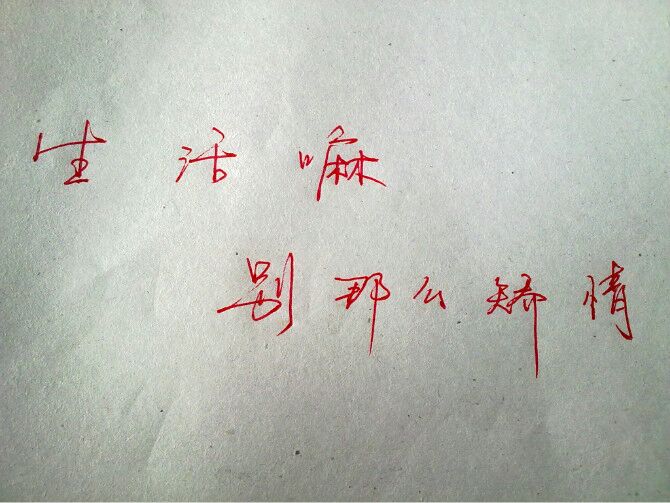 生活嘛
别那么矫情